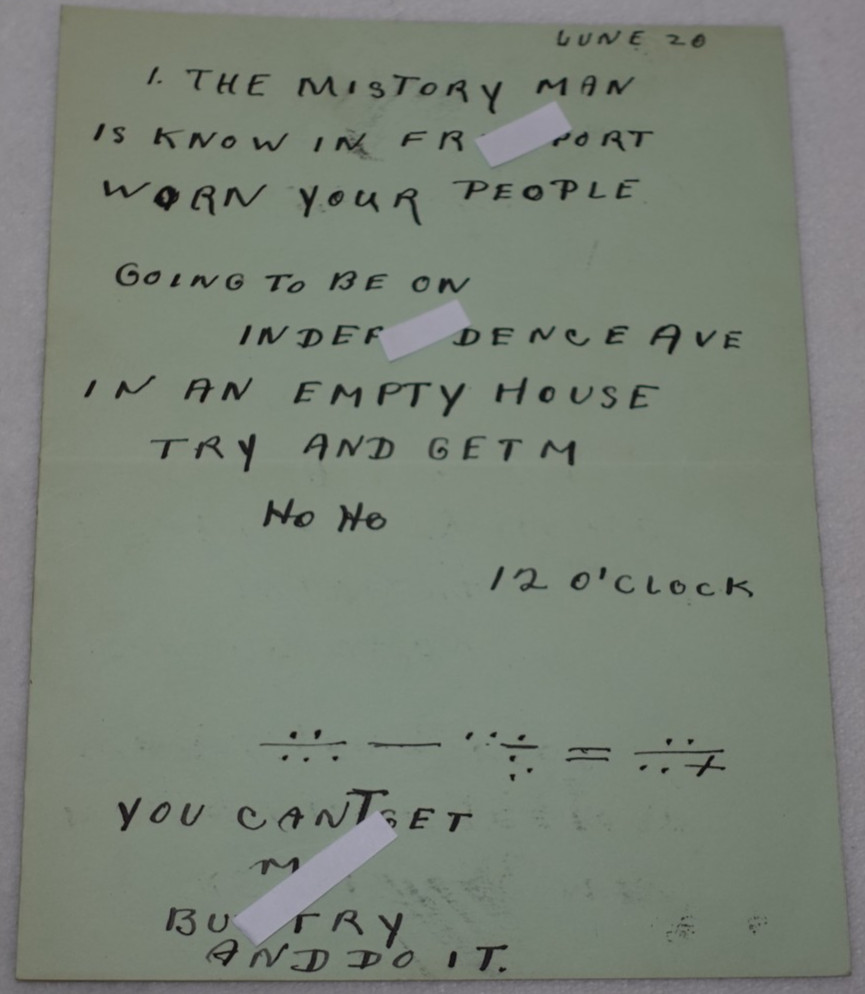 LUNE 20
1. THE MISTORY MAN
IS KNOW IN
WORN YOUR PEOPLE
GOING TO BE ON
AVE
IN AN EMPTY HOUSE
TRY AND GET M
HO HO
12 O'CLOCK
YOU CANT GET
TRY
AND DO IT.